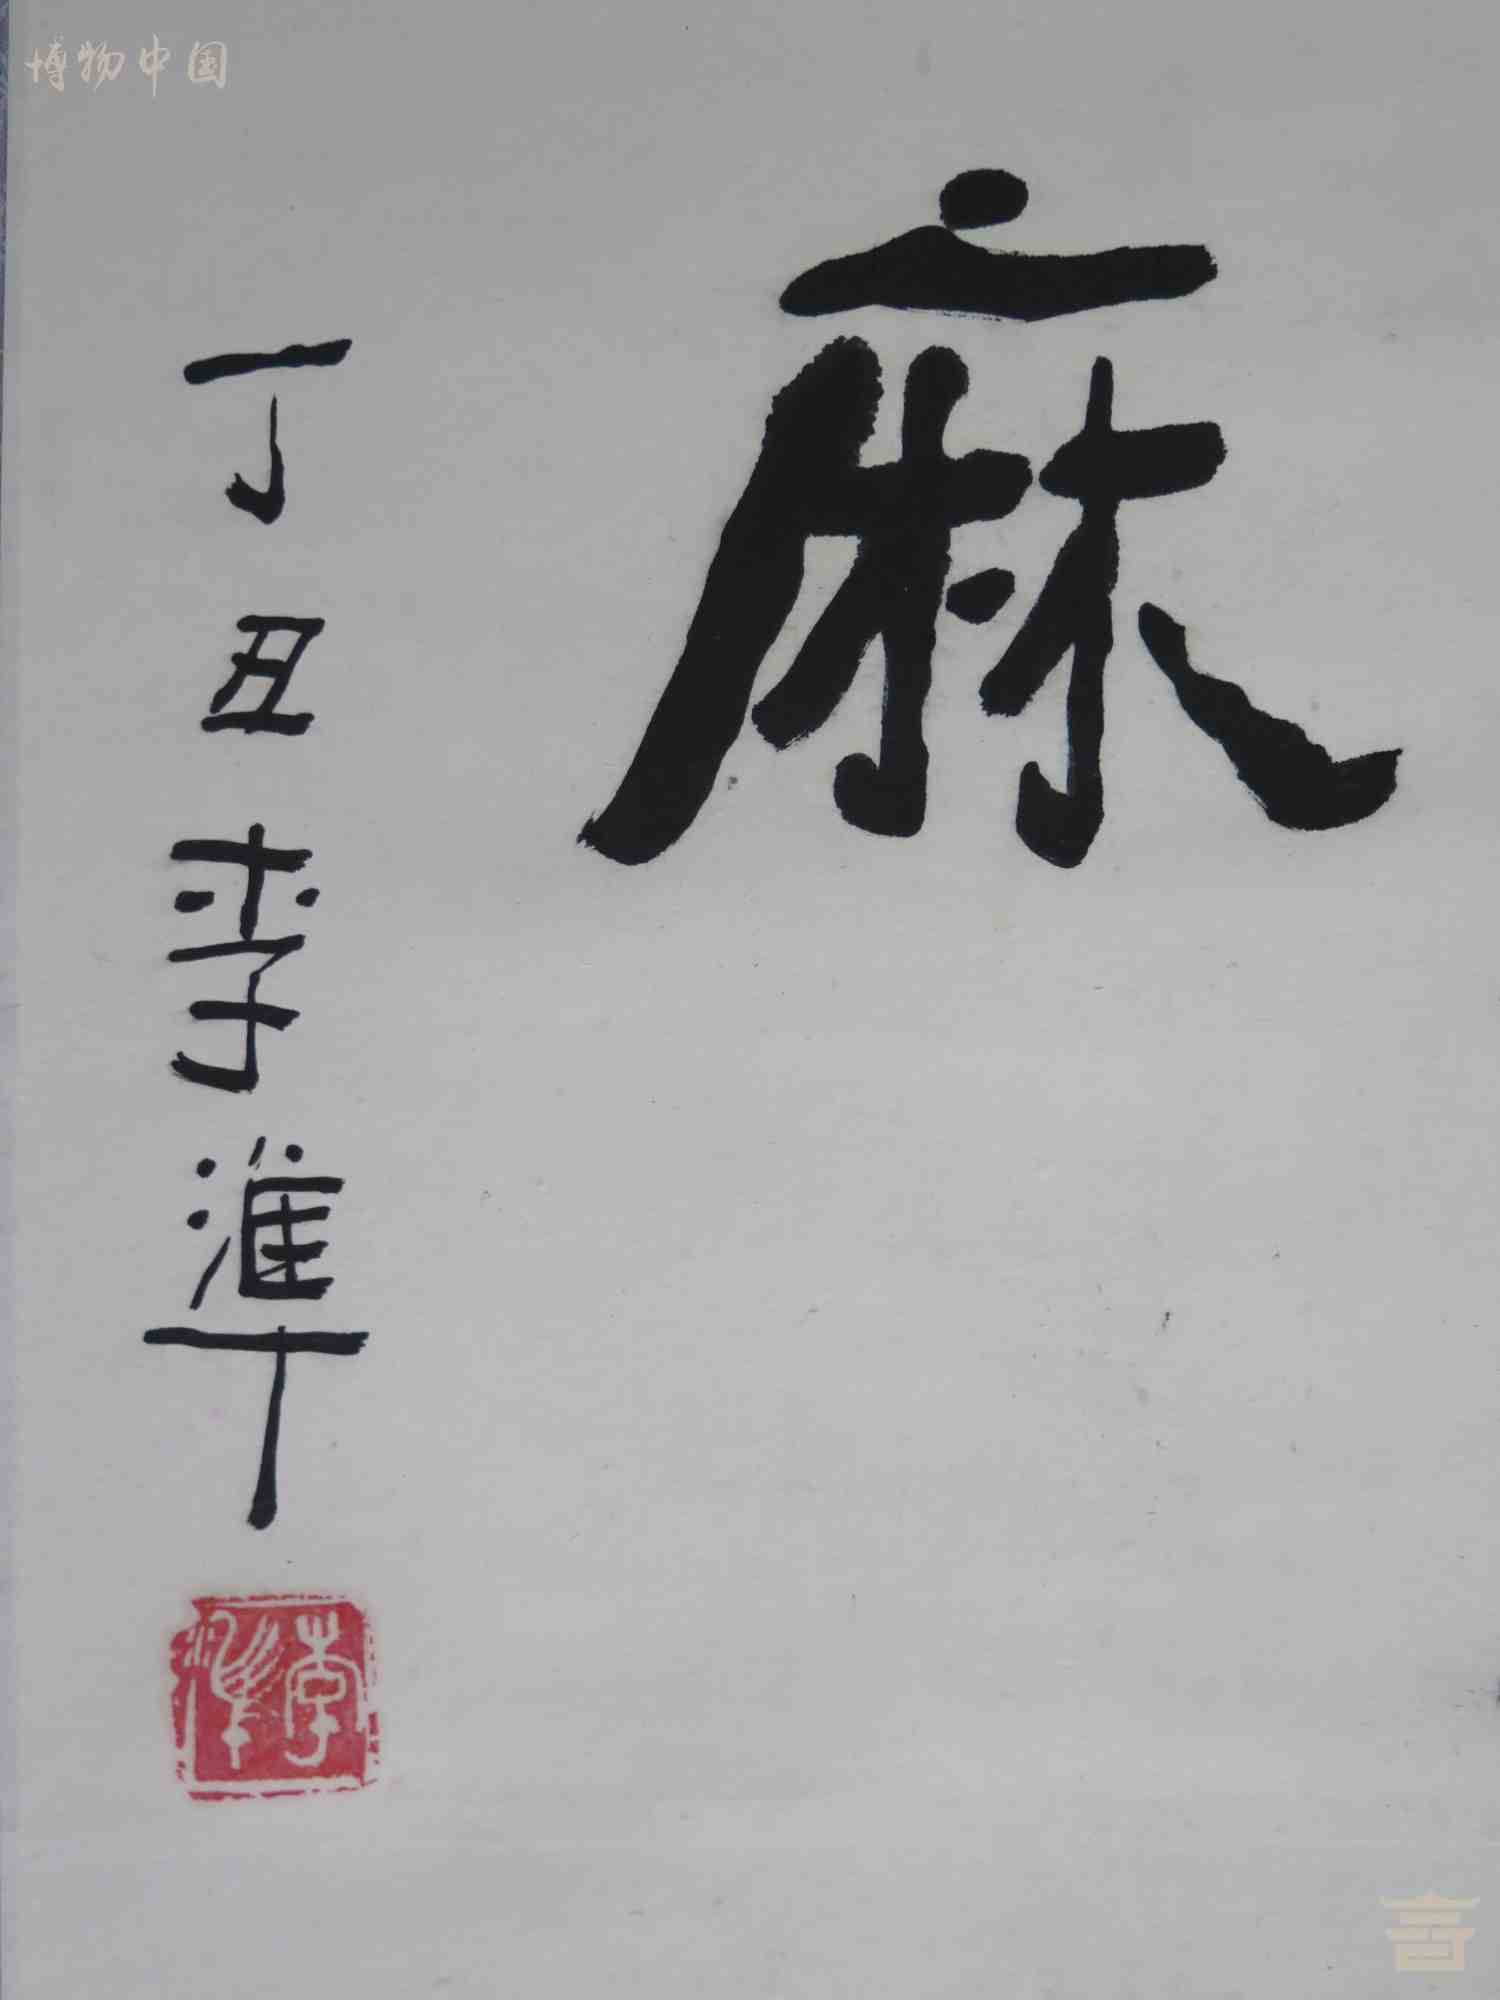 博物中国
麻
丁丑李準
李準